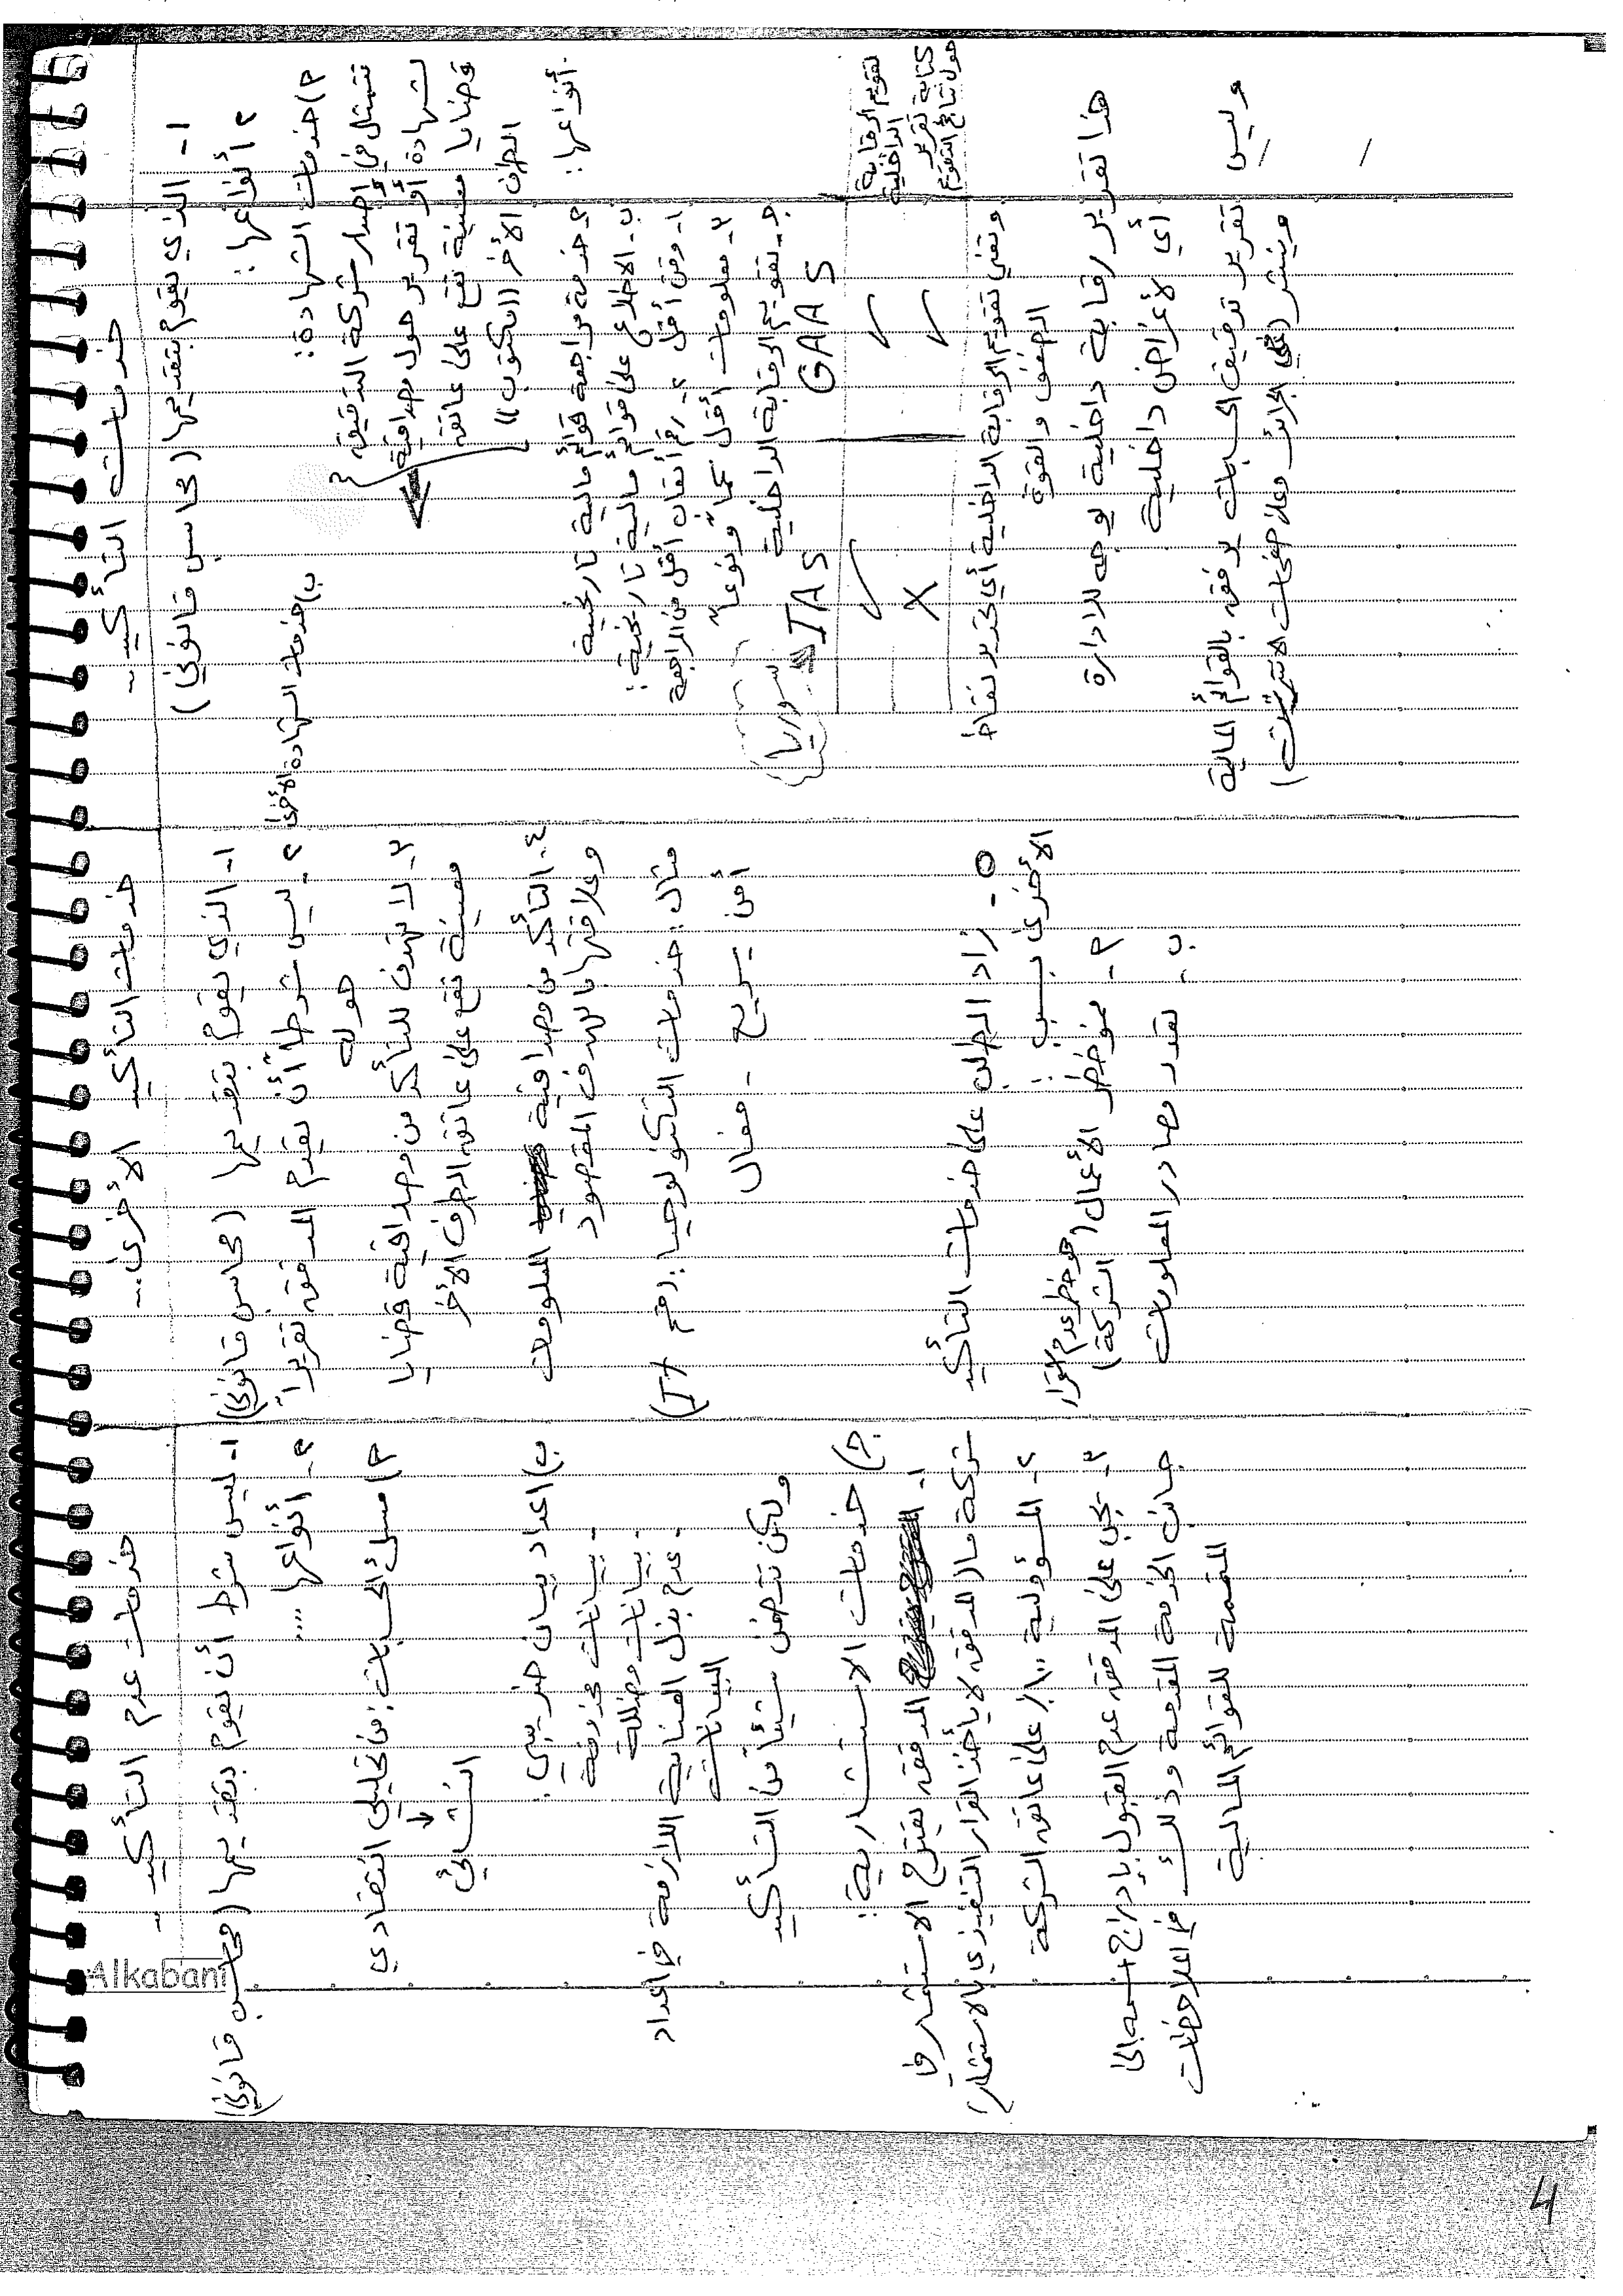 خدمات التأكيد ..
١- الذي يقوم بتقديمها (محاسب قانوني)
٢ أنواعها :
أ) خدمات الشهادة :
ب) خدمات الشهادة الأخرى
تتمثل في إصدار شركة التدقيق
لشهادة أو تقرير حول مصداقية
قضايا معينة تقع على عاتقه
الطرف الآخر ((مكتوب))
أنواعها :
٢ خدمة مراجعة قوائم مالية تاريخية
ب- الاطلاع على قوائم مالية تاريخية :
١- وقت أقل ٢- رقم أتعاب أقل من المراجعة
٣- معلومات أقل كماً ونوعاً
ج- تقويم الرقابة الداخلية
سوريا
GAAS
IAS
تقويم الرقابة الداخلية ✓ ✓
كتابة تقرير حول نتائج التقويم ✓ X
وتعني تقويم الرقابة الداخلية أي تحديد نقاط
الضعف والقوة
هذا تقرير رقابة داخلية يوجه للادارة
أي لأغراض داخلية
وليس تقرير تدقيق الحسابات يرفق بالقوائم المالية
وينشر (في الجرائد وعلى صفحات الانترنت)
خدمات التأكيد الأخرى ..
١- الذي يقوم بتقديمها (محاسب قانوني)
٢- ليس شرطاً أن يقدم المدقق تقريراً
حوله
٣- لا تهدف للتأكد من مصداقية قضايا
معينة تقع على عاتق الطرف الآخر
٤- التأكد من مصداقية المعلومات
وعلاقتها بالهدف المقصود
مثال : خدمات التكنولوجيا : (IT)
أمن - سريع - فعال
٥- زاد الطلب على خدمات التأكيد
الأخرى بسبب :
أ- مخاطر الأعمال (الشركة)
ب- تعدد مصادر المعلومات
خدمات عدم التأكيد ..
١- ليس شرط أن يقوم بتقديمها (محاسب قانوني)
٢- أنواعها ....
أ) مسك الحسابات : من تحليلي التقادي
↓
النشائي
ب) اعداد بيان ضريبي :
- بيانات محذوفة
- بيانات مضللة
- عدم بذل العناية اللازمة في اعداد
البيانات
ولكن تتضمن شيئاً من التأكيد
ج) خدمات الاستشارية :
١- المدقق يقترح الاستثمار في
شركة ما (المدقق لا يأخذ القرار التنفيذي بالاستثمار)
٢- المسؤولية ١٠٠٪ على عاتق الشركة
٣- يجب على المدقق عدم القبول بإدراج اسمه إلى
جانب الخدمة المقدمة وذلك في الملاحظات
المتممة للقوائم المالية
Alkabani
4